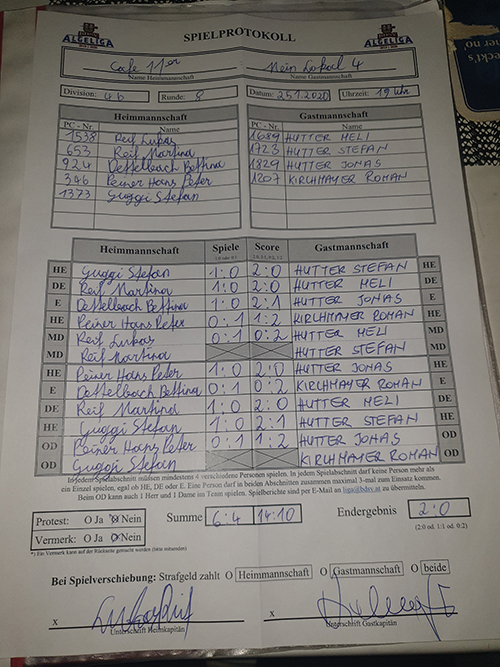 ALGELIGA SPIELPROTOKOLL ALGELIGA
Cafe 11er Mein Lokal 4
Name Heimmannschaft Name Gastmannschaft
Division: 4b Runde: 8 Datum: 25.1.2020 Uhrzeit: 19 Uhr
Heimmannschaft Gastmannschaft
PC - Nr. Name PC - Nr. Name
1538 Reif Lukas 1689 HUTTER MELI
653 Reif Martina 1723 HUTTER STEFAN
924 Dettelbach Bettina 1829 HUTTER JONAS
346 Peiner Hans Peter 1207 KIRCHMAYER ROMAN
1373 Guggi Stefan
Heimmannschaft Spiele Score Gastmannschaft
HE Guggi Stefan 1:0 2:0 HUTTER STEFAN HE
DE Reif Martina 1:0 2:0 HUTTER MELI DE
E Dettelbach Bettina 1:0 2:1 HUTTER JONAS E
HE Peiner Hans Peter 0:1 1:2 KIRCHMAYER ROMAN HE
MD Reif Lukas 0:1 0:2 HUTTER MELI MD
MD Reif Martina HUTTER STEFAN MD
HE Peiner Hans Peter 1:0 2:0 HUTTER JONAS HE
E Dettelbach Bettina 0:1 0:2 KIRCHMAYER ROMAN E
DE Reif Martina 1:0 2:0 HUTTER MELI DE
HE Guggi Stefan 1:0 2:1 HUTTER STEFAN HE
OD Peiner Hans Peter 0:1 1:2 HUTTER JONAS OD
OD Guggi Stefan KIRCHMAYER ROMAN OD
In jedem Spielabschnitt müssen mindestens 4 verschiedene Personen spielen. In jedem Spielabschnitt darf keine Person mehr als
ein Einzel spielen, egal ob HE, DE oder E. Eine Person darf in beiden Abschnitten zusammen maximal 3-mal zum Einsatz kommen.
Beim OD kann auch 1 Herr und 1 Dame im Team spielen. Spielberichte sind per E-Mail an liga@bdsv.at zu übermitteln.
Protest: O Ja O Nein Summe 6:4 14:10 Endergebnis 2:0
Vermerk: O Ja O Nein (2:0 od. 1:1 od. 0:2)
*) Ein Vermerk kann auf der Rückseite gemacht werden (bitte mitsenden)
Bei Spielverschiebung: Strafgeld zahlt O Heimmannschaft O Gastmannschaft O beide
x x
Unterschrift Heimkapitän Unterschrift Gastkapitän